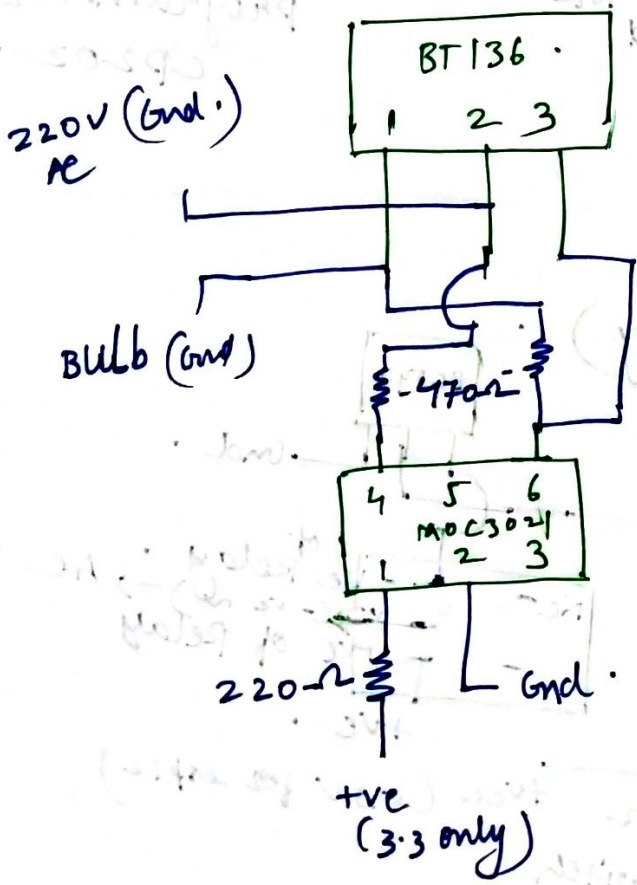 BT136
1 2 3
220V (Gnd.)
AC
Bulb (Gnd)
-470Ω-
4 5 6
MOC3021
1 2 3
220Ω
Gnd.
+ve
(3.3 only)